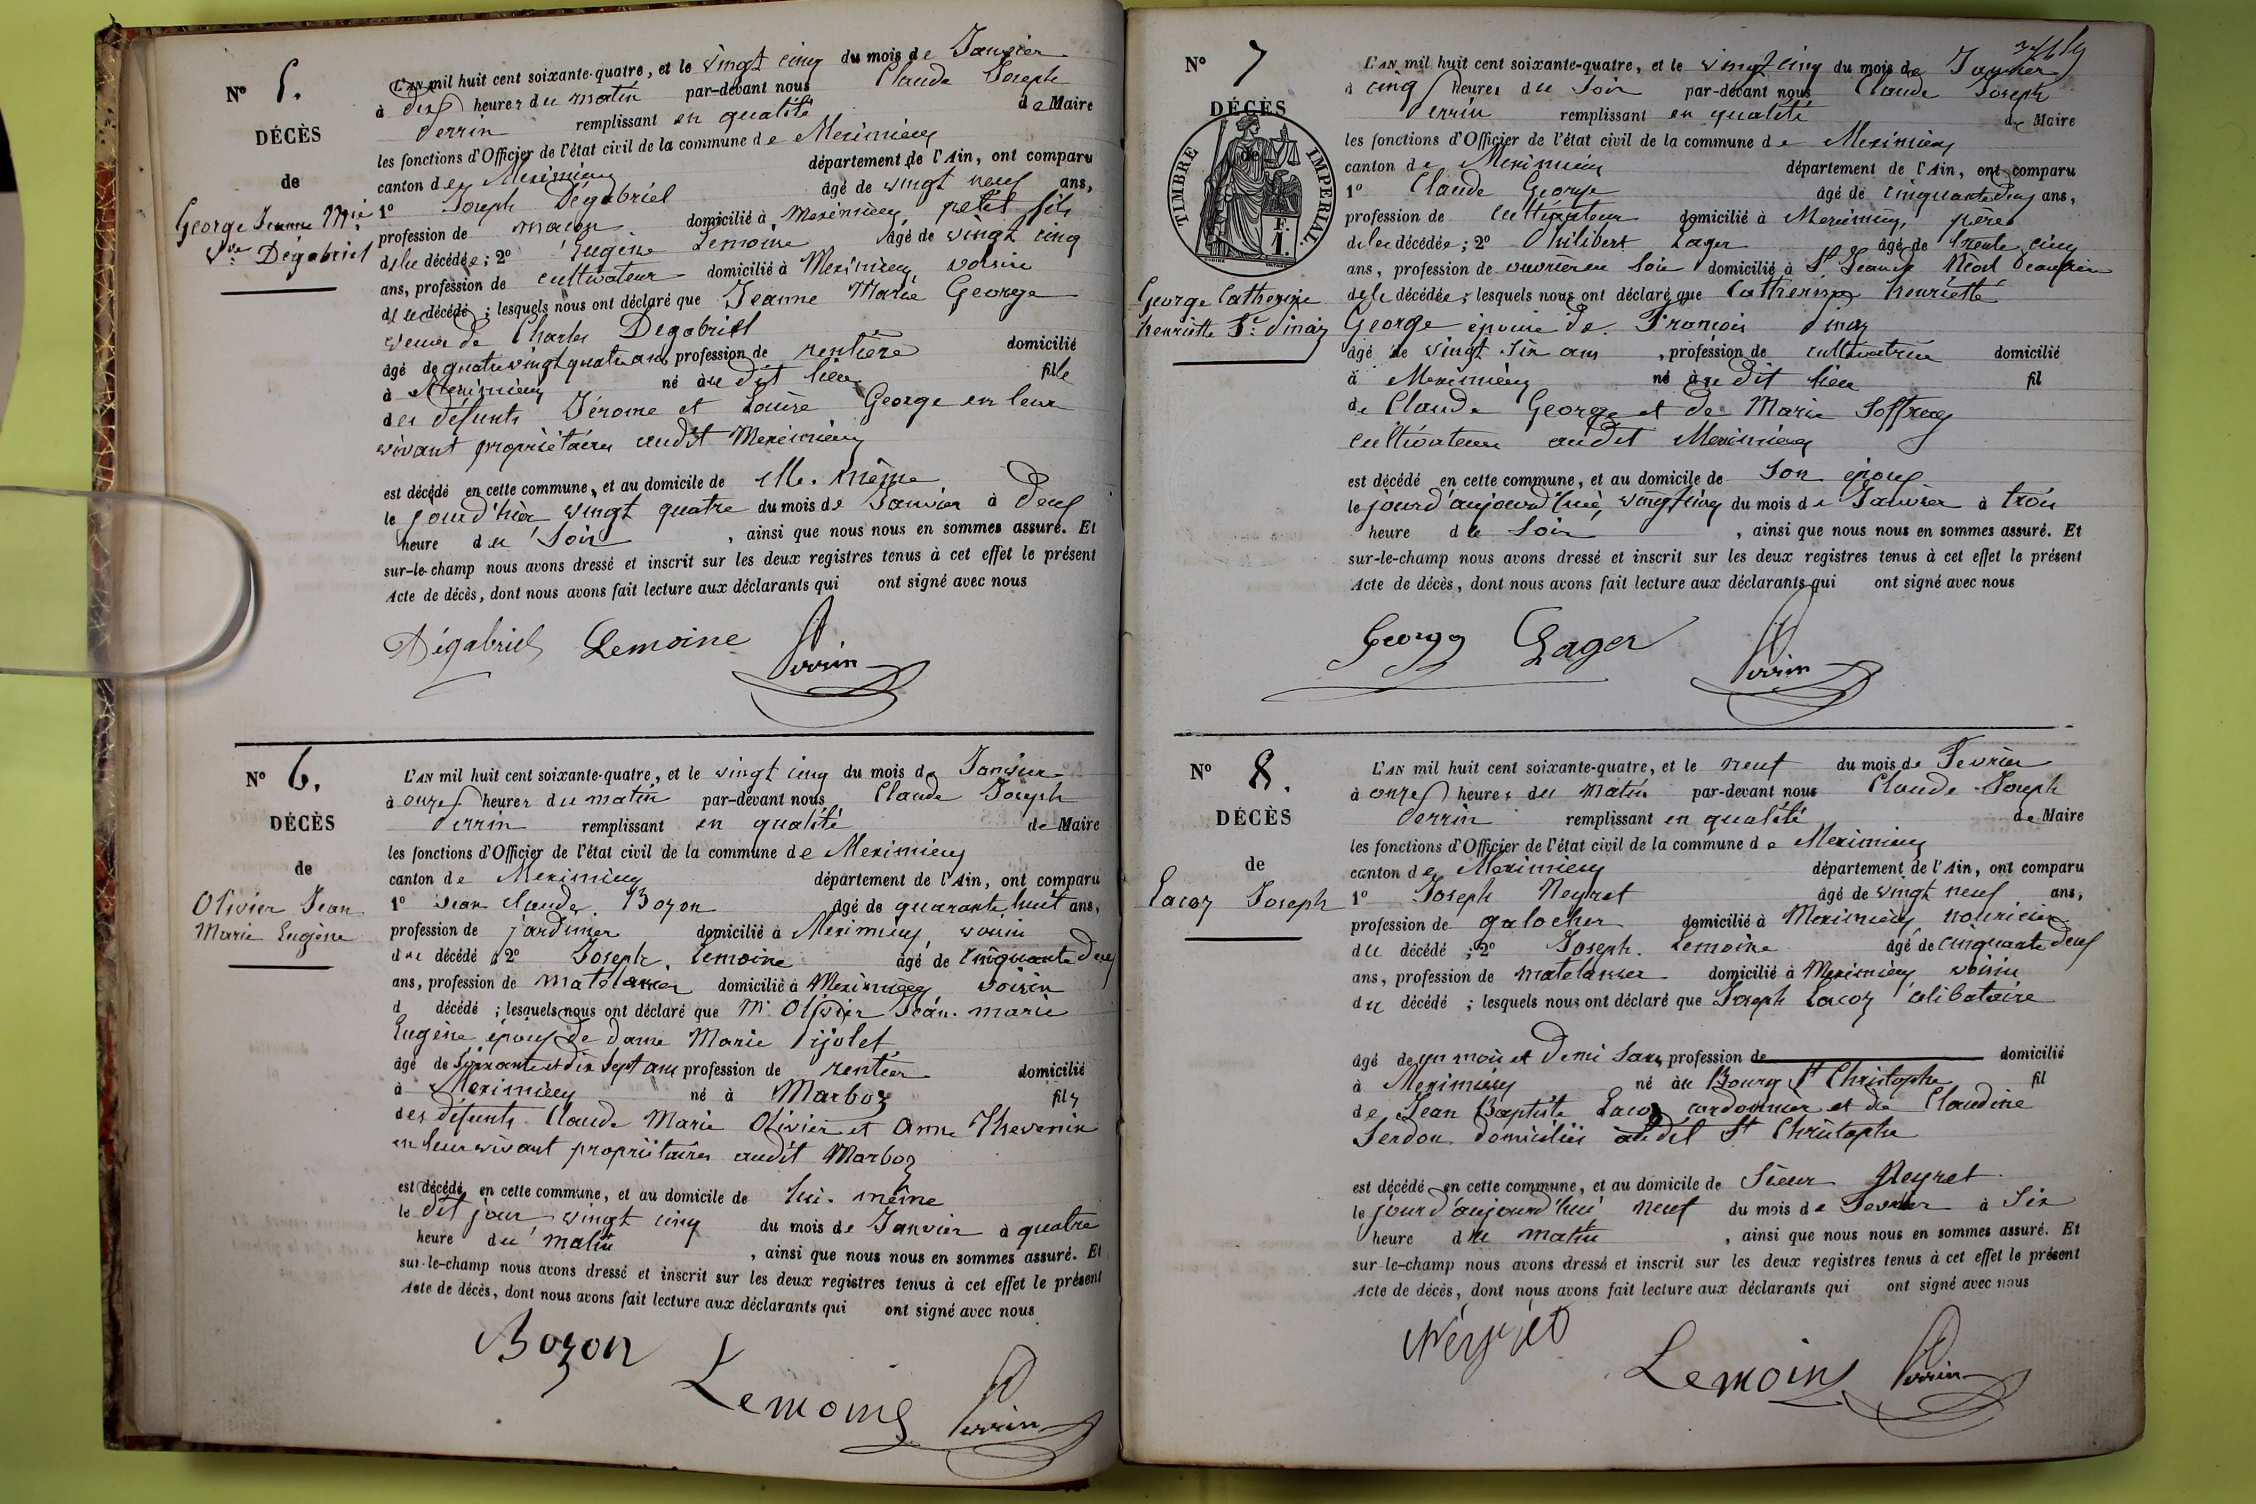 N° 5.
DÉCÈS
de
George Jeanne Mie
Vve Dégabriel
L'AN mil huit cent soixante-quatre, et le vingt cinq du mois de Janvier
à dix heures du matin par-devant nous Claude Joseph
Perrin remplissant en qualité de Maire
les fonctions d'Officier de l'état civil de la commune de Meximieux
canton de Meximieux département de l'Ain, ont comparu
1° Joseph Dégabriel âgé de vingt neuf ans,
profession de maçon domicilié à Meximieux, petit fils
de la décédée ; 2° Eugène Lemoine âgé de vingt cinq
ans, profession de cultivateur domicilié à Meximieux, voisin
de la décédé ; lesquels nous ont déclaré que Jeanne Marie George
veuve de Charles Dégabriel
âgé de quatre vingt quatre ans, profession de rentière domicilié
à Meximieux né au dit lieu fille
des défunts Jérome et Louise George en leur
vivant propriétaires audit Meximieux
est décédé en cette commune, et au domicile de elle-même
le jour d'hier vingt quatre du mois de Janvier à deux
heure du soir, ainsi que nous nous en sommes assuré. Et
sur-le-champ nous avons dressé et inscrit sur les deux registres tenus à cet effet le présent
Acte de décès, dont nous avons fait lecture aux déclarants qui ont signé avec nous
Dégabriel Lemoine Perrin
N° 6.
DÉCÈS
de
Olivier Jean
Marie Eugène
L'AN mil huit cent soixante-quatre, et le vingt cinq du mois de Janvier
à onze heures du matin par-devant nous Claude Joseph
Perrin remplissant en qualité de Maire
les fonctions d'Officier de l'état civil de la commune de Meximieux
canton de Meximieux département de l'Ain, ont comparu
1° Jean Claude Bozon âgé de quarante huit ans,
profession de jardinier domicilié à Meximieux, voisin
du décédé ; 2° Joseph Lemoine âgé de cinquante deux
ans, profession de matelassier domicilié à Meximieux, voisin
d décédé ; lesquels nous ont déclaré que Mr Olivier Jean-marie
Eugène époux de dame Marie Pijolet
âgé de soixante et dix sept ans profession de rentier domicilié
à Meximieux né à Marboz fils
des défunts Claude Marie Olivier et Anne Thevenin
en leur vivant propriétaires audit Marboz
est décédé en cette commune, et au domicile de lui-même
le dit jour vingt cinq du mois de Janvier à quatre
heure du matin, ainsi que nous nous en sommes assuré. Et
sur-le-champ nous avons dressé et inscrit sur les deux registres tenus à cet effet le présent
Acte de décès, dont nous avons fait lecture aux déclarants qui ont signé avec nous
Bozon
Lemoine Perrin
N° 7
DÉCÈS
de
TIMBRE IMPERIAL.
F.
1.
George Catherine
henriette
L'AN mil huit cent soixante-quatre, et le vingt cinq du mois de Janvier
à cinq heures du soir par-devant nous Claude Joseph
Perrin remplissant en qualité de Maire
les fonctions d'Officier de l'état civil de la commune de Meximieux
canton de Meximieux département de l'Ain, ont comparu
1° Claude George âgé de cinquante deux ans,
profession de cultivateur domicilié à Meximieux, père
de la décédée ; 2° Philibert Lager âgé de trente cinq
ans, profession de ouvrier en soie domicilié à St Jean de Niost beaufrère
de la décédée ; lesquels nous ont déclaré que Catherine henriette
George épouse de François
âgé de vingt six ans, profession de cultivatrice domicilié
à Meximieux né au dit lieu fil
de Claude George et de Marie Joffray
cultivateurs audit Meximieux
est décédé en cette commune, et au domicile de son époux
le jour d'aujourd'hui, vingt cinq du mois de Janvier à trois
heure du soir, ainsi que nous nous en sommes assuré. Et
sur-le-champ nous avons dressé et inscrit sur les deux registres tenus à cet effet le présent
Acte de décès, dont nous avons fait lecture aux déclarants qui ont signé avec nous
George Lager Perrin
N° 8.
DÉCÈS
de
Lacoz Joseph
L'AN mil huit cent soixante-quatre, et le neuf du mois de Fevrier
à onze heures du matin par-devant nous Claude-Joseph
Perrin remplissant en qualité de Maire
les fonctions d'Officier de l'état civil de la commune de Meximieux
canton de Meximieux département de l'Ain, ont comparu
1° Joseph Neyret âgé de vingt neuf ans,
profession de galocher domicilié à Meximieux nouricier
du décédé ; 2° Joseph Lemoine âgé de cinquante deux
ans, profession de matelassier domicilié à Meximieux voisin
du décédé ; lesquels nous ont déclaré que Joseph Lacoz célibataire
âgé de un mois et demi sans profession de domicilié
à Meximieux né au Bourg St Christophe fil
de Jean Baptiste Lacoz cordonnier et de Claudine
Serdon domiciliés audit St Christophe
est décédé en cette commune, et au domicile de Sieur Neyret
le jour d'aujourd'hui neuf du mois de Fevrier à six
heure du matin, ainsi que nous nous en sommes assuré. Et
sur-le-champ nous avons dressé et inscrit sur les deux registres tenus à cet effet le présent
Acte de décès, dont nous avons fait lecture aux déclarants qui ont signé avec nous
Lemoine Perrin